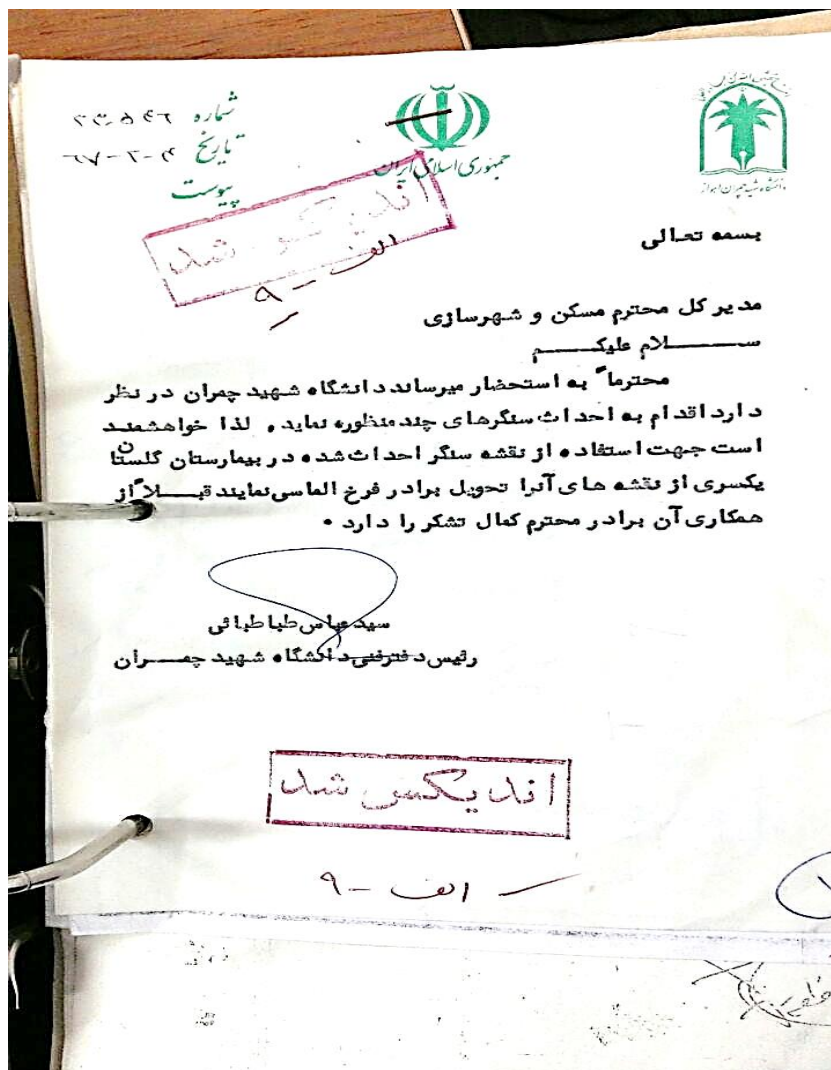 شماره ۲۳۰۵۴۶
تاریخ ۶۷-۲-۴
پیوست
جمهوری اسلامی ایران
دانشگاه شهید چمران اهواز
اندیکس شد
الف - ۹
بسمه تعالی
مدیر کل محترم مسکن و شهرسازی
ســـــلام علیکـــــم
محترما" به استحضار میرساند دانشگاه شهید چمران در نظر
دارد اقدام به احداث سنگرهای چند منظوره نماید. لذا خواهشمند
است جهت استفاده از نقشه سنگر احداث شده در بیمارستان گلستان
یکسری از نقشه های آنرا تحویل برادر فرخ الماسی نمایند قبـــلا" از
همکاری آن برادر محترم کمال تشکر را دارد .
سید عباس طباطبائی
رئیس دفتر فنی دانشگاه شهید چمـــران
اندیکس شد
الف - ۹